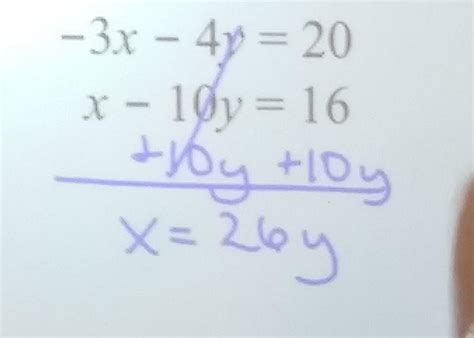 -3x - 4y = 20
x - 10y = 16
+10y +10y
x = 26y